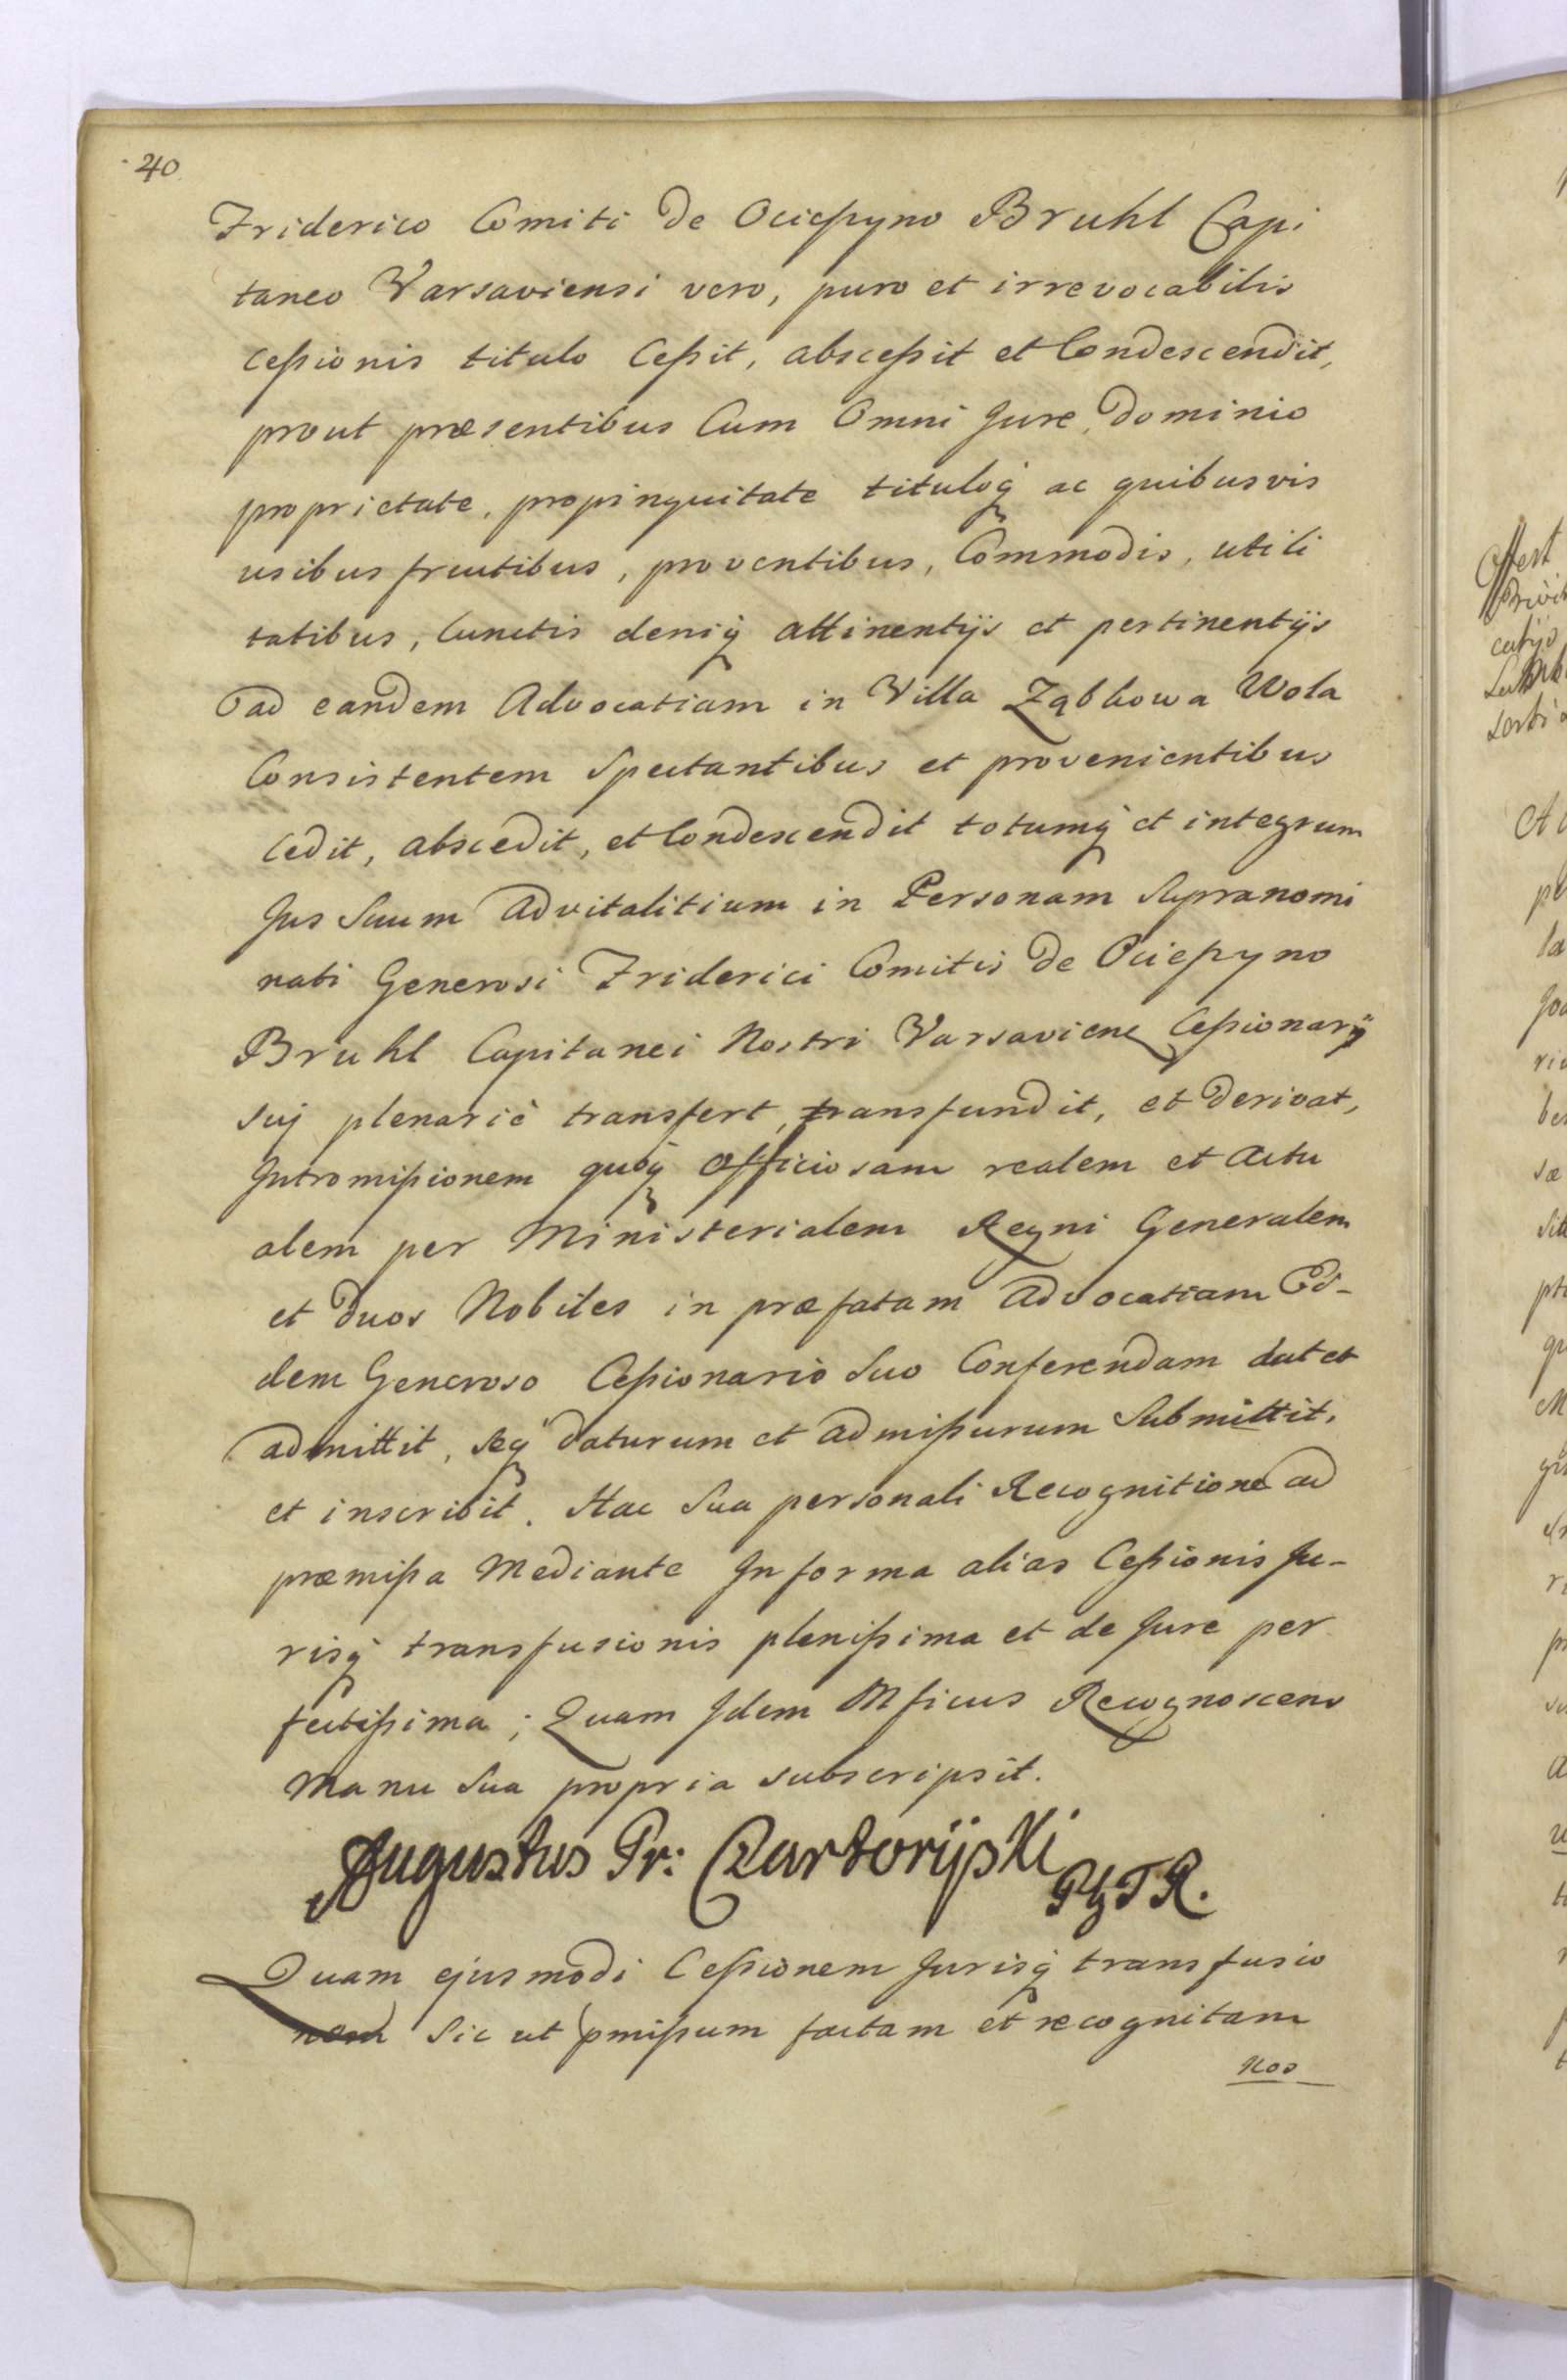 40
Friderico Comiti de Ocieszyno Bruhl Capi
taneo Varsaviensi vero, puro et irrevocabilis
Cessionis titulo Cessit, abscessit et Condescendit,
prout præsentibus Cum Omni Jure, Dominio
proprietate, propinquitate tituloq; ac quibusvis
usibus fructibus, proventibus, Commodis, utili
tatibus, Cunctis deniq; attinentijs et pertinentijs
ad eandem Advocatiam in Villa Ząbkowa Wola
Consistentem Spectantibus et provenientibus
Cedit, abscedit, et Condescendit totumq; et integrum
Jus Suum Advitalitium in Personam Supranomi
nati Generosi Friderici Comitis de Ocieszyno
Bruhl Capitanei Nostri Varsavien Cessionarij
Suj plenariè transfert, transfundit, et derivat,
Intromissionem quoq; Officiosam realem et Actu
alem per Ministerialem Regni Generalem
et duos Nobiles in præfatam Advocatiam Ei-
dem Generoso Cessionario Suo Conferendam dat et
admittit, seq; daturum et admissurum Submittit,
et inscribit. Hac Sua personali Recognitione ad
præmissa Mediante In forma alias Cessionis Ju-
risq; transfusionis plenissima et de Jure per
fectissima; Quam Idem Mficus Recognoscens
Manu Sua propria subscripsit.
Augustus Pr: Czartoryski
Quam ejusmodi Cessionem Jurisq; transfusio
nem Sic ut pmissum factam et recognitam
Nos